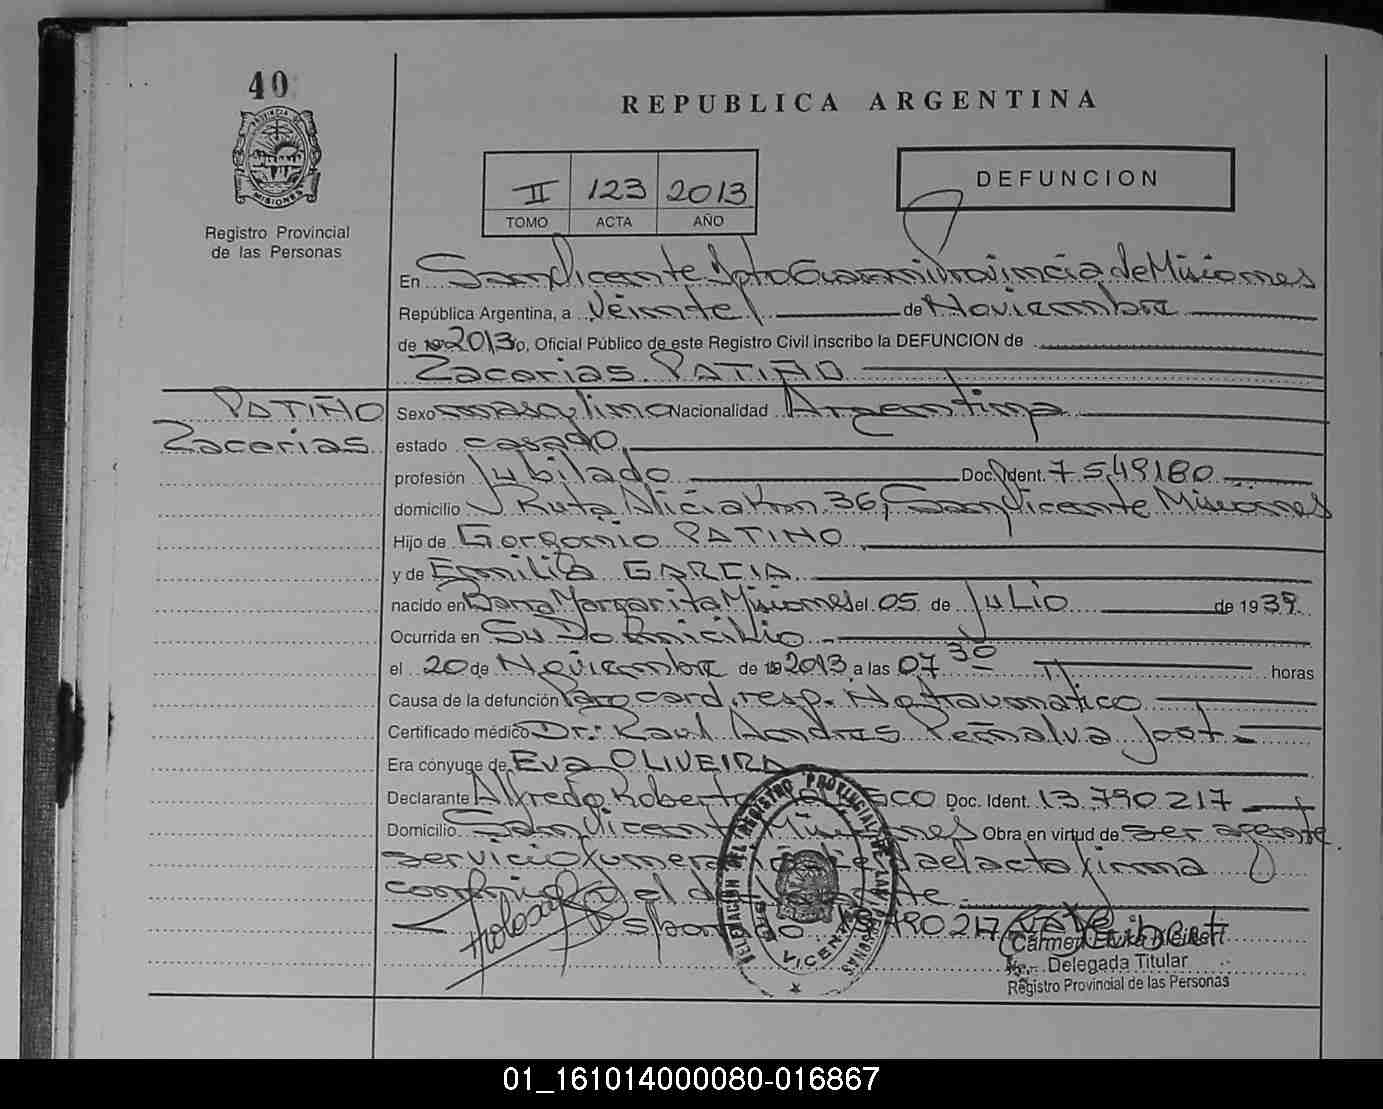 40
PROVINCIA DE
MISIONES
Registro Provincial
de las Personas
REPUBLICA ARGENTINA
II 123 2013
TOMO ACTA AÑO
DEFUNCION
En San Vicente Dpto Guarani Provincia de Misiones
República Argentina, a Veinte de Noviembre
de 2013, Oficial Público de este Registro Civil inscribo la DEFUNCION de
Zacarias PATIÑO
PATIÑO
Zacarias
Sexo masculino Nacionalidad Argentina
estado casado
profesión Jubilado Doc. Ident. 7.549180
domicilio Ruta Alicia Km 36, San Vicente Misiones
Hijo de Gorgonio PATIÑO
y de Emilia GARCIA
nacido en Barra Margarita Misiones el 05 de Julio de 1939
Ocurrida en Su Domicilio
el 20 de Noviembre de 2013 a las 07 30 horas
Causa de la defunción Paro card. resp. No traumático
Certificado médico Dr. Raul Andres Peñalva Jost
Era cónyuge de Eva OLIVEIRA
Declarante Alfredo Roberto Doc. Ident. 13.790.217
Domicilio San Vicente Misiones Obra en virtud de ser agente
servicio del acto firma
el
13790217
Carmen
Delegada Titular
Registro Provincial de las Personas
DELEGACION DEL REGISTRO PROVINCIAL DE LAS PERSONAS
VICENTE
01_161014000080-016867